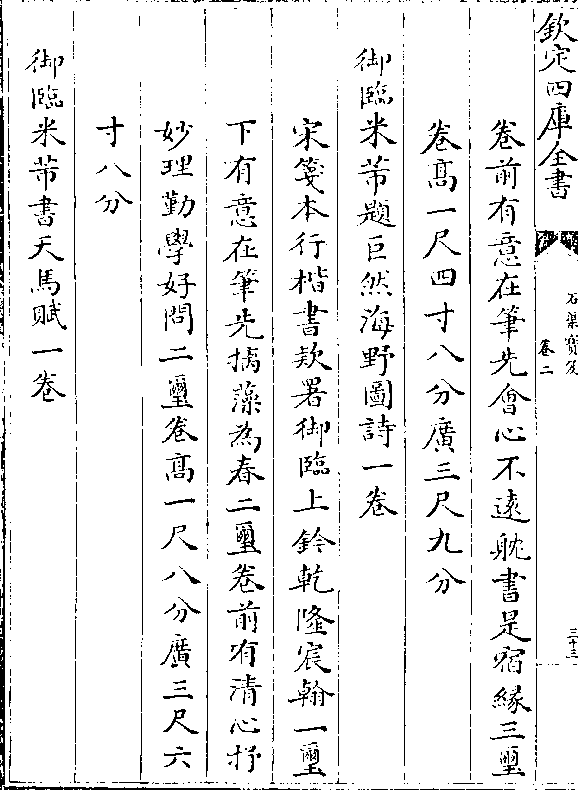 欽定四庫全書
石渠寶笈
卷二
三十三
卷前有意在筆先會心不遠躭書是宿緣三璽
卷高一尺四寸八分廣三尺九分
御臨米芾題巨然海野圖詩一卷
宋箋本行楷書欵署御臨上鈐乾隆宸翰一璽
下有意在筆先摛藻為春二璽卷前有清心抒
妙理勤學好問二璽卷高一尺八分廣三尺六
寸八分
御臨米芾書天馬賦一卷